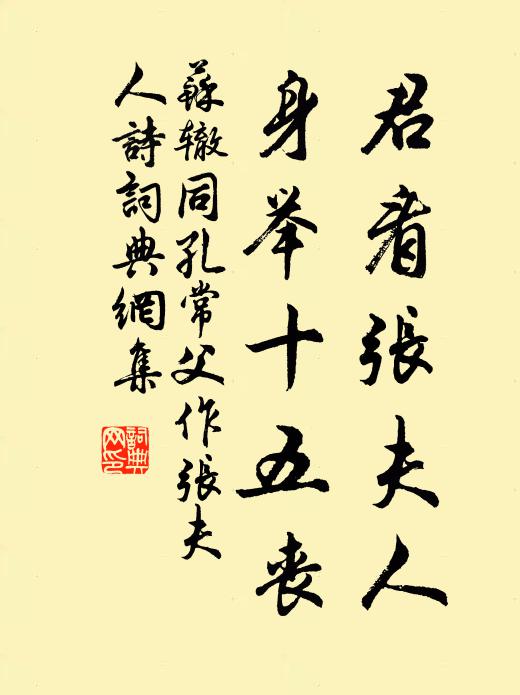 君看張夫人
身举十五丧
蘇辙同孔常父作張夫
人詩詞典網集
詞典
网印